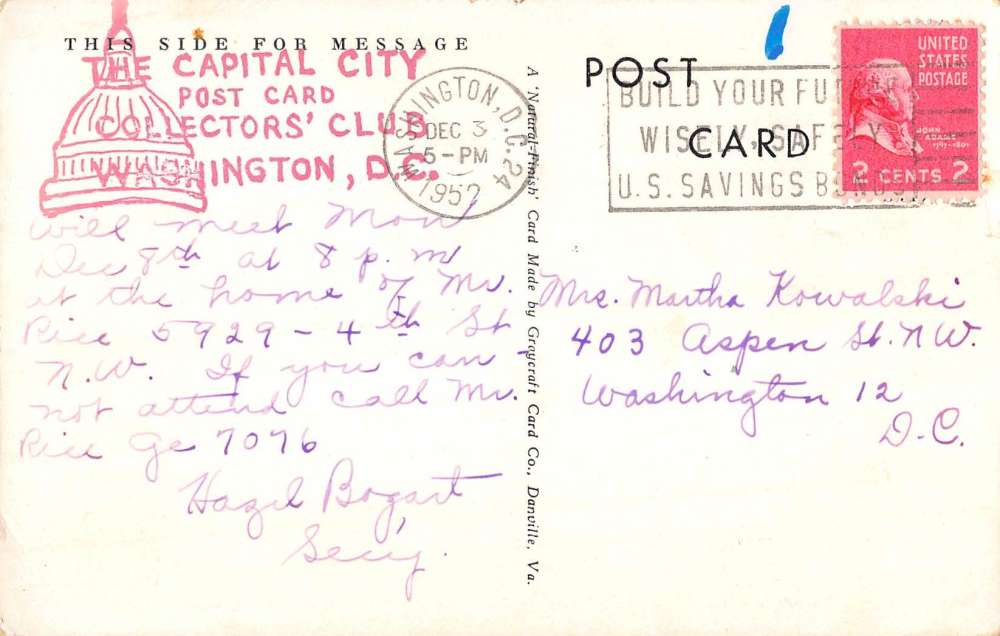 THIS SIDE FOR MESSAGE
THE CAPITAL CITY
POST CARD
COLLECTORS' CLUB
WASHINGTON, D.C.
Will meet Mon
Dec 8th at 8 p.m
at the home of Mr.
Rice 5929 - 4th St
N.W. If you can -
not attend call Mr.
Rice Ge 7076
Hazel Bogart
Secy.
WASHINGTON, D.C. 24
DEC 3
5 - PM
1952
A 'Natural-Finish' Card Made by Graycraft Card Co., Danville, Va.
POST
CARD
BUILD YOUR FU
WISELY, SAFELY
U.S. SAVINGS BONDS
UNITED
STATES
POSTAGE
JOHN
ADAMS
1797-1801
2 CENTS 2
Mrs. Martha Kowalski
403 Aspen St. N.W.
Washington 12
D.C.